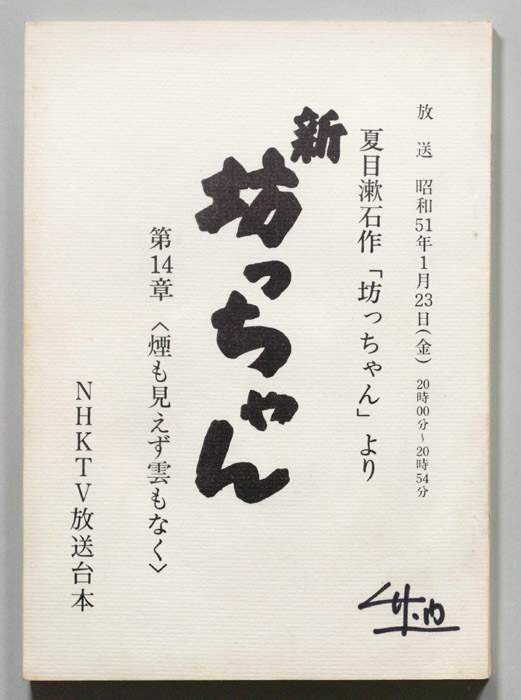 放送 昭和51年1月23日(金) 20時00分~20時54分
夏目漱石作「坊っちゃん」より
新
坊っちゃん
第14章 〈煙も見えず雲もなく〉
NHKTV放送台本
竹内